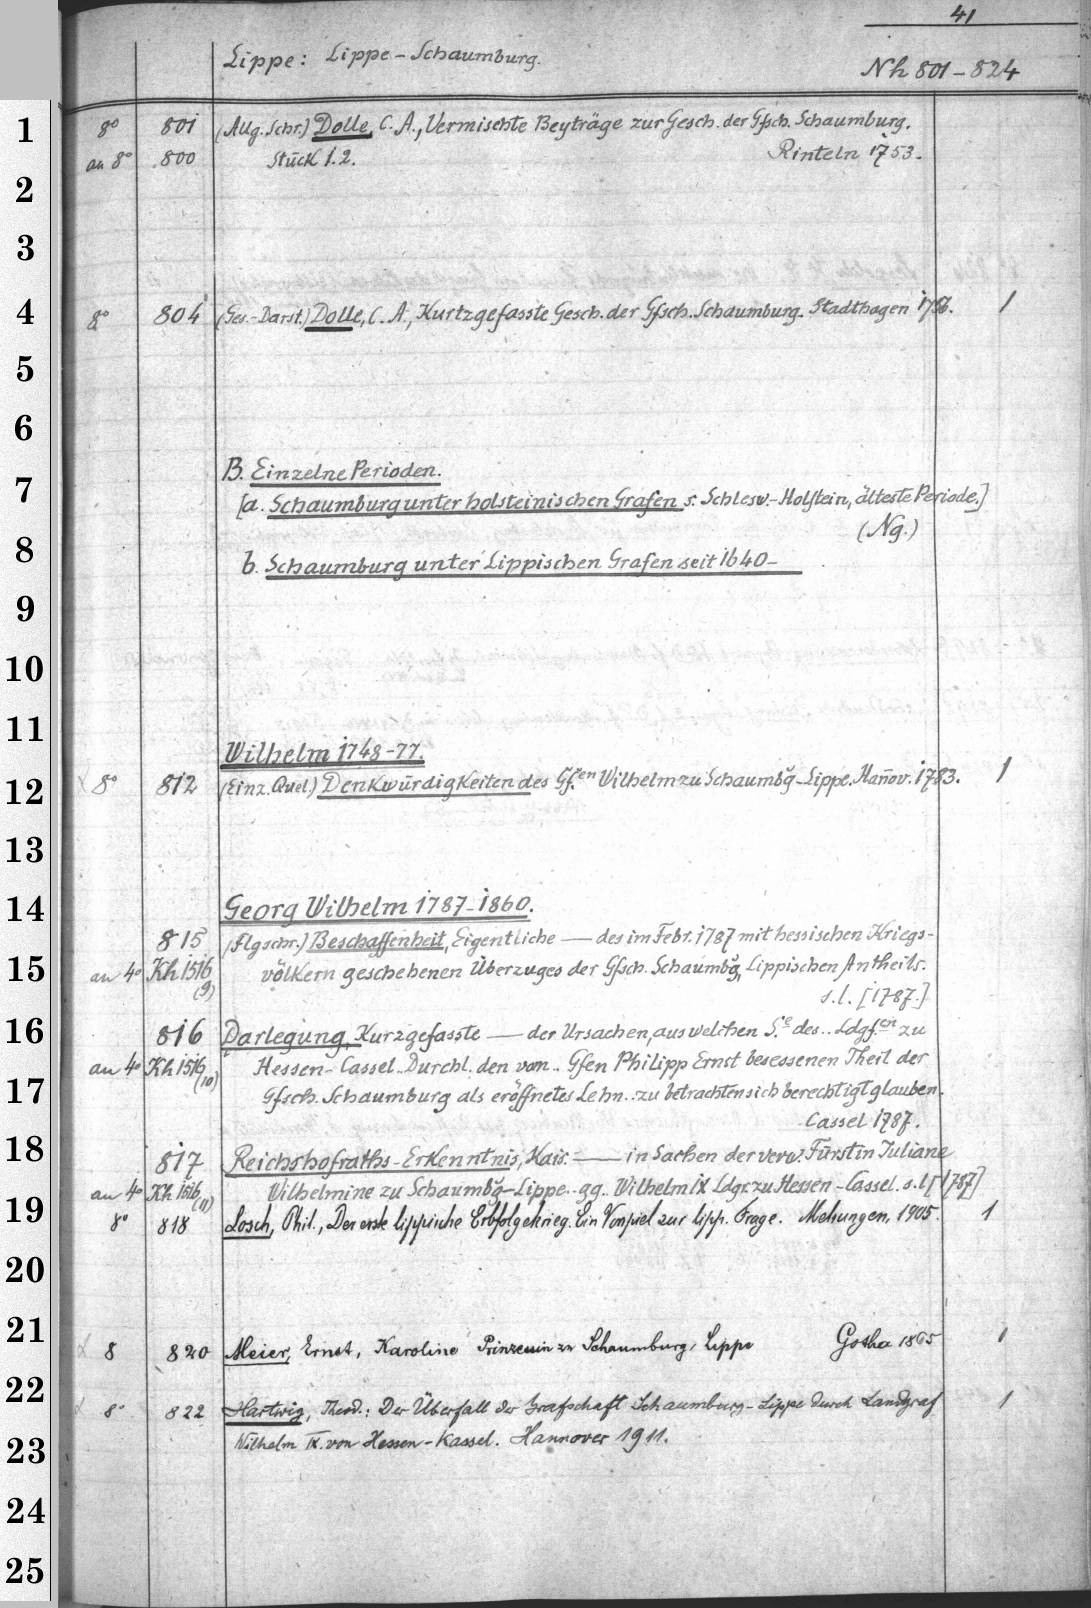 41
Lippe: Lippe-Schaumburg.
Nh 801-824
1 8° 801 (Allg. Schr.) Dolle, C. A., Vermischte Beyträge zur Gesch. der Gfsch. Schaumburg.
an 8° 800 Stück 1. 2. Rinteln 1753.
2
3
4 8° 804 (Ges.-Darst.) Dolle, C. A., Kurtzgefasste Gesch. der Gfsch. Schaumburg. Stadthagen 1756. 1
5
6
B. Einzelne Perioden.
7 [a. Schaumburg unter holsteinischen Grafen s. Schlesw.-Holstein, älteste Periode.]
(Ng.)
8 b. Schaumburg unter Lippischen Grafen seit 1640-
9
10
11
Wilhelm 1748-77.
12 8° 812 (Einz. Quel.) Denkwürdigkeiten des Gf.en Wilhelm zu Schaumbg-Lippe. Hannov. 1783. 1
13
14 Georg Wilhelm 1787-1860.
815 (Flgschr.) Beschaffenheit, Eigentliche — des im Febr. 1787 mit hessischen Kriegs-
15 an 4° Kh 1516 (9) völkern geschehenen Überzuges der Gfsch. Schaumbg, Lippischen Antheils.
s. l. [1787.]
16 816 Darlegung, Kurzgefasste — der Ursachen, aus welchen S.e des.. Ldgf.en zu
an 4° Kh 1516 (10) Hessen-Cassel.. Durchl. den vom.. Gfen Philipp Ernst besessenen Theil der
17 Gfsch. Schaumburg als eröffnetes Lehn.. zu betrachten sich berechtigt glauben.
Cassel 1787.
18 817 Reichshofraths-Erkenntnis, Kais. — in Sachen der verw. Fürstin Juliane
an 4° Kh 1516 (11) Wilhelmine zu Schaumbg-Lippe.. gg.. Wilhelm IX Ldgr. zu Hessen-Cassel. s. l. [1787]
19 8° 818 Losch, Phil., Der erste lippische Erbfolgekrieg. Ein Vorspiel zur lipp. Frage. Melsungen, 1905. 1
20
21 8 820 Meier, Ernst, Karoline Prinzessin zu Schaumburg-Lippe Gotha 1865 1
22 8° 822 Hartwig, Theod.: Der Überfall der Grafschaft Schaumburg-Lippe durch Landgraf 1
23 Wilhelm IX. von Hessen-Kassel. Hannover 1911.
24
25